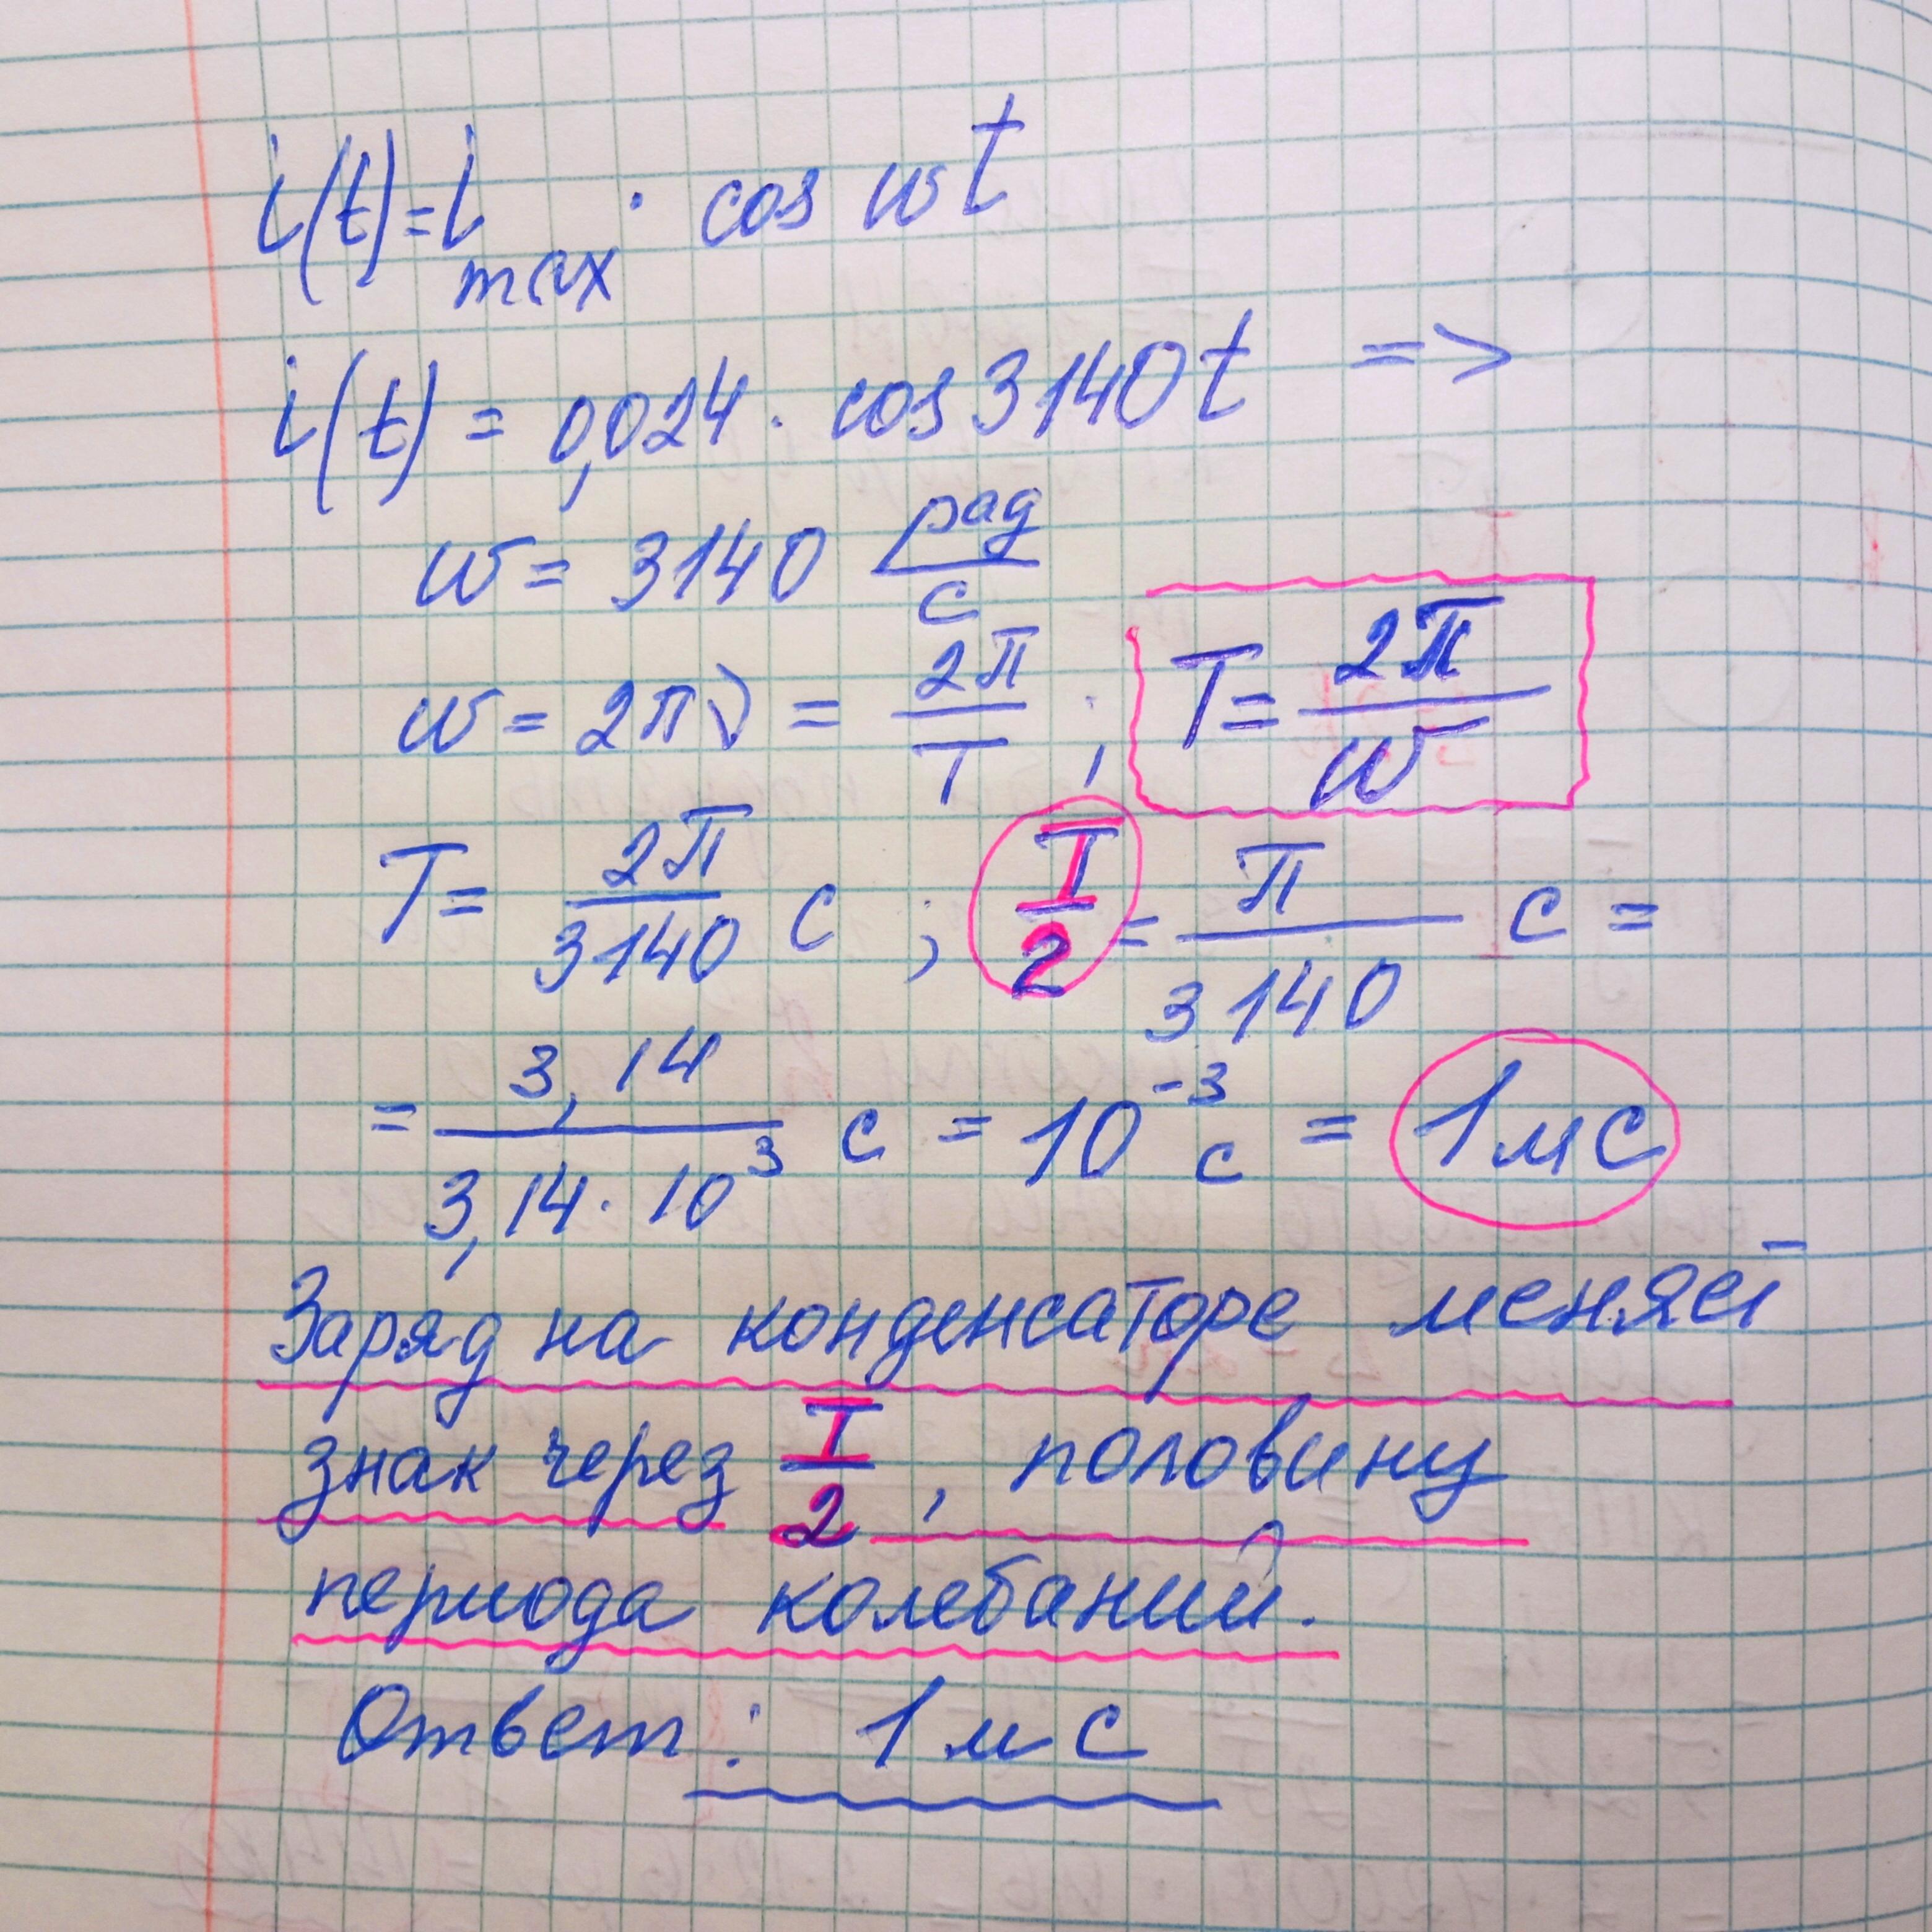 i(t)=i max · cos ωt
i(t) = 0,024 · cos 3140t =>
ω = 3140 рад/с
ω = 2πν = 2π/T ; T = 2π/ω
T = 2π/3140 с ; T/2 = π/3140 с =
= 3,14/3,14·10³ с = 10⁻³ с = 1мс
Заряд на конденсаторе меняет
знак через T/2, половину
периода колебаний.
Ответ: 1мс